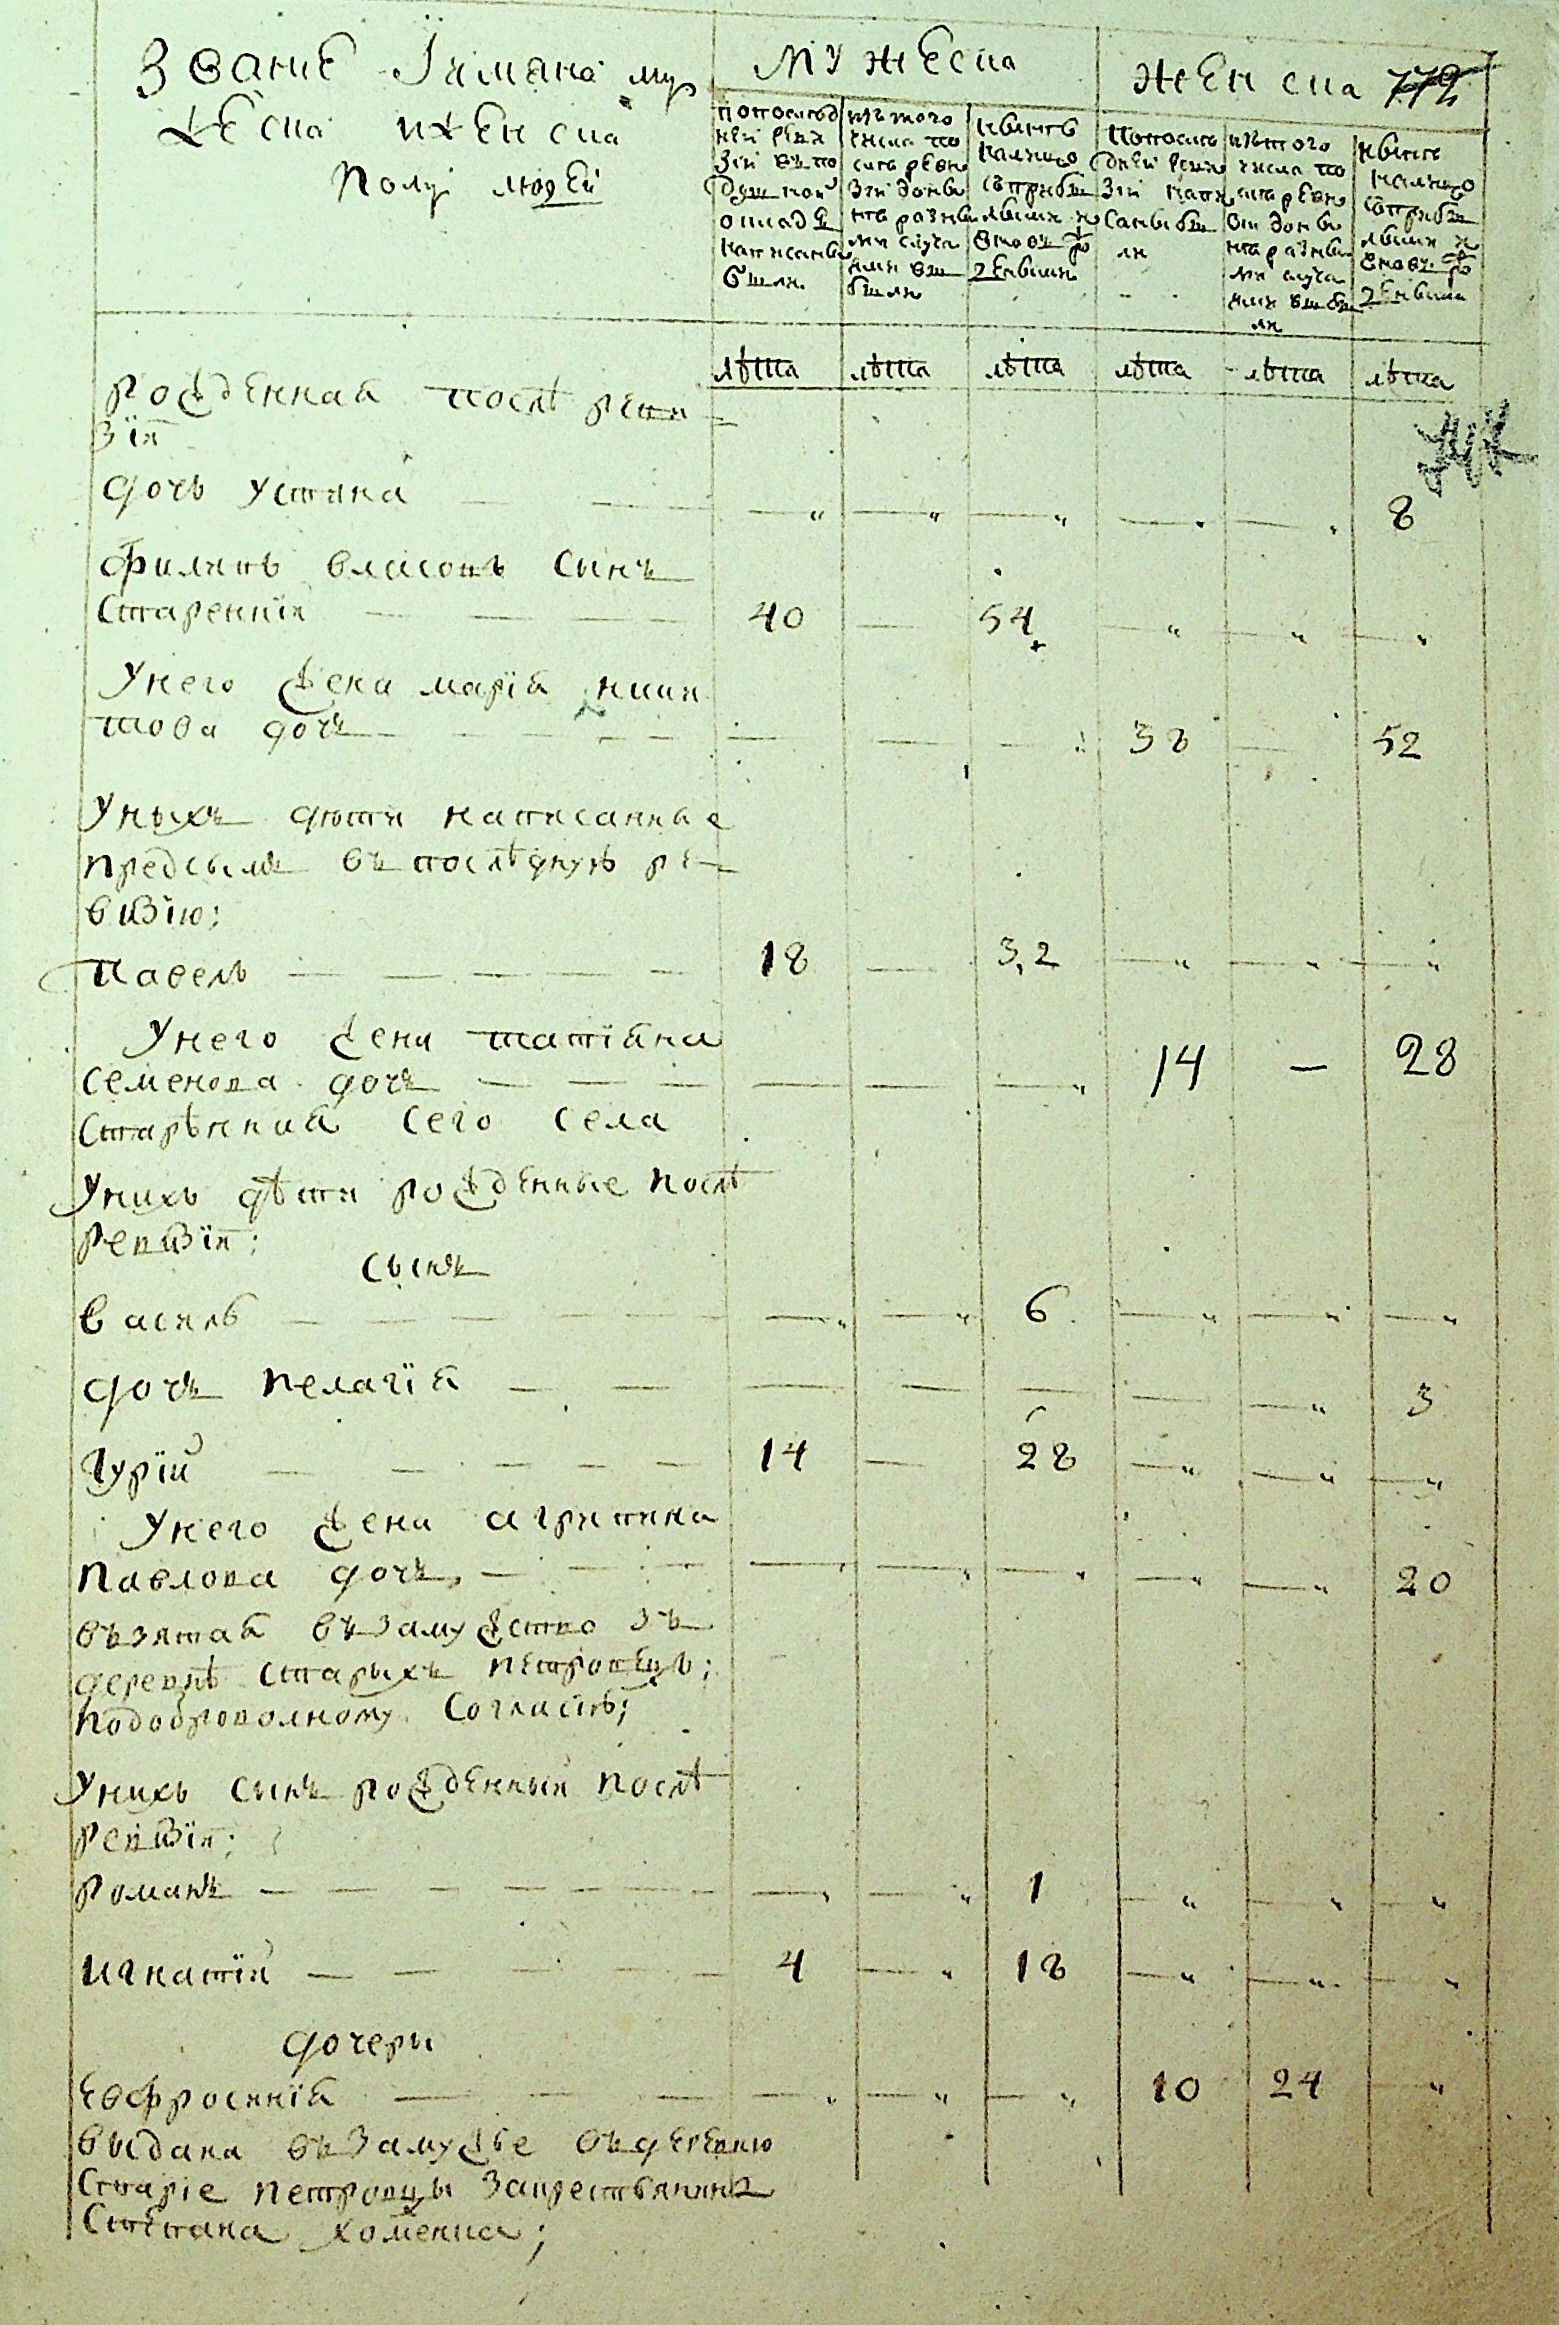 Званиѣ Їимяна му
жеска иженска
полу людей
мужеска
женска 772
попослѣд
ней реви
зїи въпо
душной
окладъ
написаны
были
изътого
числа по
слѣ реви
зїи доны
нѣ разны
ми случа
ями вы
были
нынѣ
налицо
съприбы
лыми и
вновь ро
ждеными
попослѣ
дней реви
зїи напи
саны бы
ли
изътого
числа по
слѣ реви
зїи доны
нѣ разны
ми случа
ями выбы
ли
нынѣ
налицо
съприбы
лыми и
вновь ро
ждеными
лѣта лѣта лѣта лѣта лѣта лѣта
рожденная послѣ реви
зїи
дочь устина — — — " — " — " — " — " 8
филипъ власовъ сынъ
старенній — — — 40 — 54 — " — " — "
унего жена марїя ники
това дочъ — — — — — — 38 — 52
уныхъ дѣти написанные
предсымъ въ послѣдную ре-
визїю;
павелъ — — — — — 18 — 32 — " — " — "
унего жена татїяна
семенова дочъ — — — — — — " 14 — 28
старѣнная сего села
унихъ дѣти рожденные послѣ
ревизїи;
сынъ
василь — — — — — — " — " 6 — " — " — "
дочъ пелагїя — — — — — — — " 3
гурїй — — — — — 14 — 28 — " — " — "
унего жена агрипина
павлова дочъ, — — — — " — " — " — " — " 20
възятая възамужство зъ
деревнѣ старыхъ петровецъ;
подобровольному согласію;
унихъ сынъ рожденный послѣ
ревизїи;
романъ — — — — — — — " — " 1 — " — " — "
игнатїй — — — — — 4 — " 18 — " — " — "
дочери
евфросинїя — — — — " — " — " 10 24 — "
выдана възамужье въдеревню
старїе петровцы закрестьянина
степана хоменка;